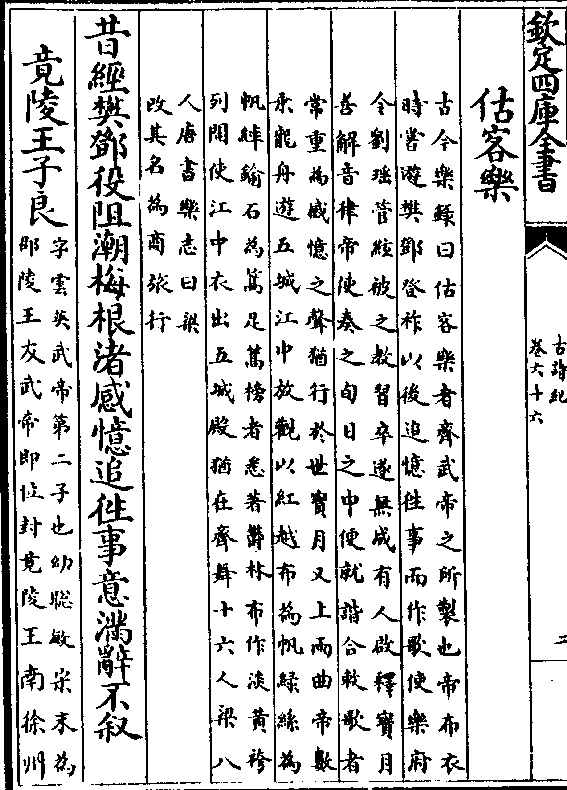 欽定四庫全書
古詩紀
卷六十六
二
估客樂
古今樂錄曰估客樂者齊武帝之所製也帝布衣
時嘗遊樊鄧登祚以後追憶往事而作歌使樂府
令劉瑶管絃被之教習卒遂無成有人啟釋寳月
善解音律帝使奏之旬日之中便就諧合敕歌者
常重為感憶之聲猶行於世寳月又上兩曲帝數
乘龍舟遊五城江中放觀以紅越布為帆緑絲為
帆縴鍮石為篙足篙榜者悉著欝林布作淡黄袴
列開使江中衣出五城殿猶在齊舞十六人梁八
人唐書樂志曰梁
改其名為商旅行
昔經樊鄧役阻潮梅根渚感憶追往事意滿辭不叙
竟陵王子良
字雲英武帝第二子也幼聰敏宋末為
邵陵王友武帝即位封竟陵王南徐州